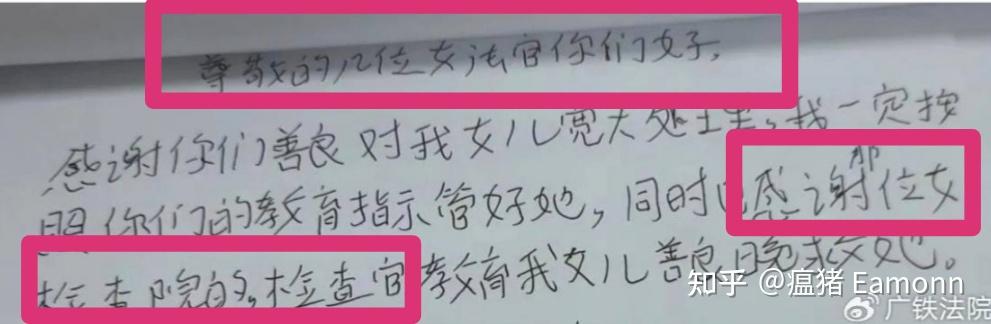 尊敬的几位女法官你们好,
感谢你们善良对我女儿宽大处理,我一定按
照你们的教育指示管好她,同时也感谢那位女
检查院的,检查官教育我女儿善良晚求她。
知乎 @瘟猪 Eamonn
广铁法院